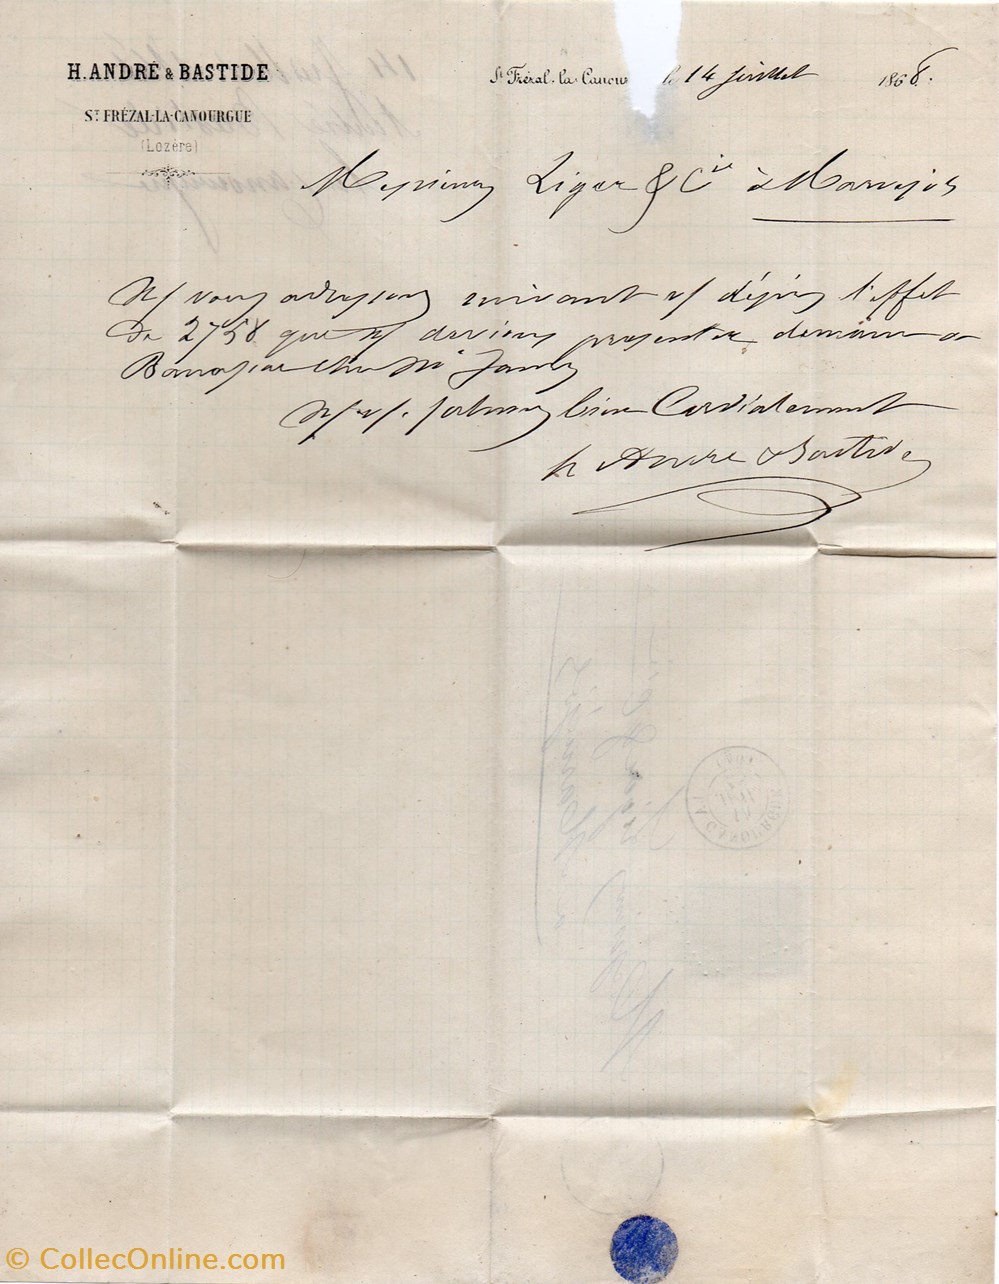 H. ANDRÉ & BASTIDE
ST FRÉZAL-LA-CANOURGUE
(Lozère)
St Frézal-la-Canour le 14 juillet 1868.
Messieurs Ligar & Cie à Marvejols
Ns vous adressons suivant vs désirs l'effet
de 2758 que ns devions presenter demain a
chez Mr
bien Cordialement
h André & Bastide
LA CANOURGUE
© CollecOnline.com